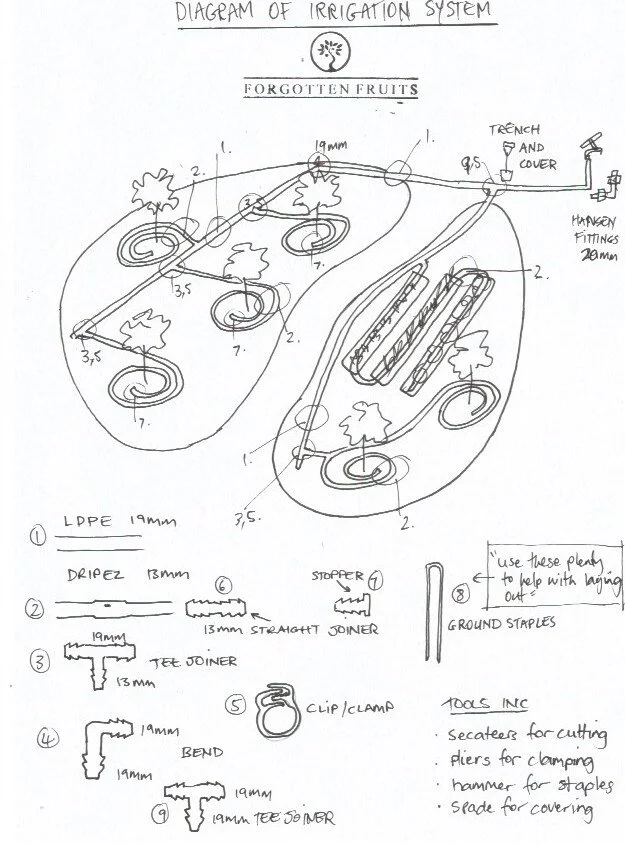 DIAGRAM OF IRRIGATION SYSTEM
FORGOTTEN FRUITS
19mm
1.
TRENCH
AND
COVER
9,5
1.
2.
3,
HANSEN
FITTINGS
7.
3,5
2.
7.
2.
3,5
7.
1.
3,5.
2.
① LDPE 19mm
② DRIPEZ 13mm
⑥
13mm STRAIGHT JOINER
STOPPER ⑦
⑧
"use these plenty
to help with laying
out"
GROUND STAPLES
③ 19mm
TEE JOINER
13mm
④ 19mm
BEND
19mm
⑤ CLIP/CLAMP
⑨ 19mm
19mm TEE JOINER
TOOLS INC
· secateers for cutting
· pliers for clamping
· hammer for staples
· spade for covering